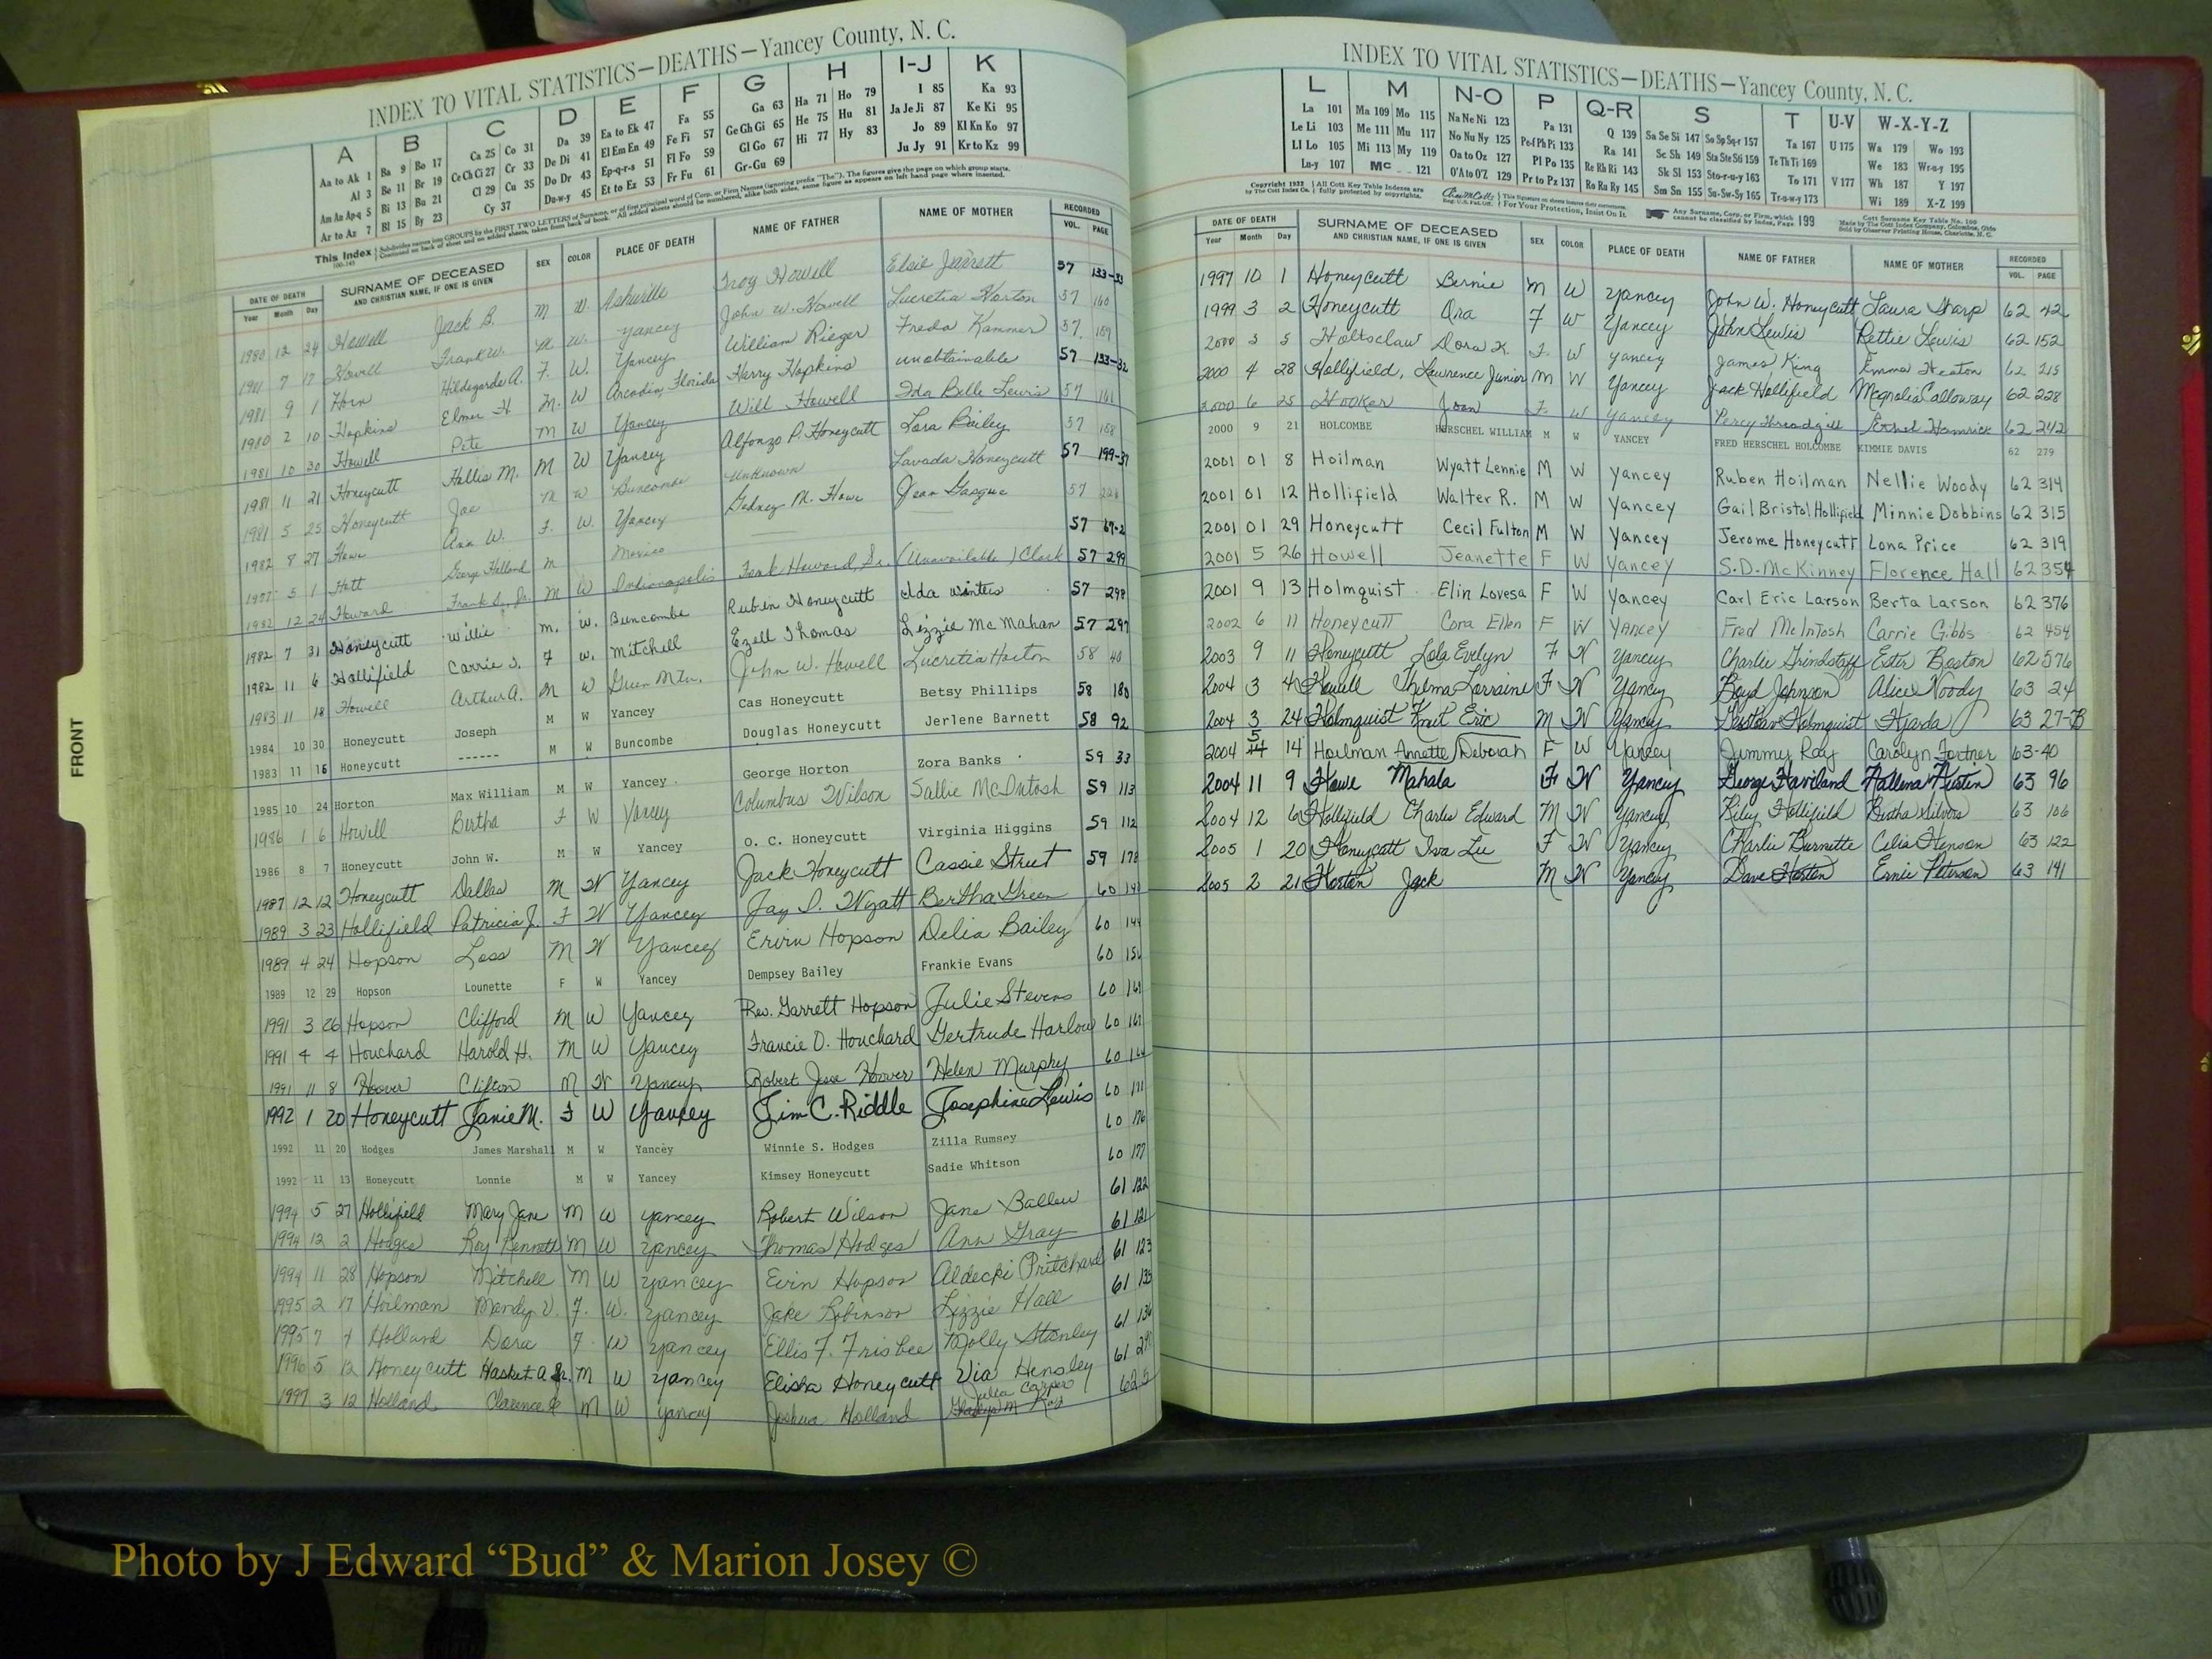 INDEX TO VITAL STATISTICS—DEATHS—Yancey County, N. C.
A B C D E F G H I-J K
Aa to Ak 1 Ba 9 Bo 17 Ca 25 Co 31 Da 39 Ea to Ek 47 Fa 55 Ga 63 Ha 71 Ho 79 I 85 Ka 93
Al 3 Be 11 Br 19 Ce Ch Ci 27 Cr 33 De Di 41 El Em En 49 Fe Fi 57 Ge Gh Gi 65 He 75 Hu 81 Ja Je Ji 87 Ke Ki 95
Am An Ap-q 5 Bi 13 Bu 21 Cl 29 Cu 35 Do Dr 43 Ep-q-r-s 51 Fl Fo 59 Gl Go 67 Hi 77 Hy 83 Jo 89 Kl Kn Ko 97
Ar to Az 7 Bl 15 By 23 Cy 37 Du-w-y 45 Et to Ez 53 Fr Fu 61 Gr-Gu 69 Ju Jy 91 Kr to Kz 99
This Index Subdivides names into GROUPS by the FIRST TWO LETTERS of Surname, or of first principal word of Corp. or Firm Names (ignoring prefix "The"). The figures give the page on which group starts.
Continued on back of sheet and on added sheets, taken from back of book. All added sheets should be numbered, alike both sides, same figure as appears on left hand page where inserted.
DATE OF DEATH SURNAME OF DECEASED SEX COLOR PLACE OF DEATH NAME OF FATHER NAME OF MOTHER RECORDED
Year Month Day AND CHRISTIAN NAME, IF ONE IS GIVEN VOL. PAGE
1980 12 24 Howell Jack B. M W. Ashville Troy Howell Elsie Jarrett 57 133-53
1981 7 17 Howell Frank W. M W. Yancey John W. Howell Lucretia Horton 57 160
1981 9 1 Horn Hildegarde A. F. W. Yancey William Rieger Freda Kammer 57 159
1980 2 10 Hopkins Elmer H. M. W Arcadia, Florida Harry Hopkins unobtainable 57 133-32
1981 10 30 Howell Pete M W Yancey Will Howell Ida Belle Lewis 57 161
1981 11 21 Honeycutt Hallis M. M W Yancey Alfonzo P. Honeycutt Lora Bailey 57 158
1981 5 25 Honeycutt Joe M W Buncombe Unknown Lavada Honeycutt 57 199-37
1982 8 27 Howe Ann W. F. W. Yancey Sedney M. Howe Jean Gasque 57
5 1 Hott George Holland M Mexico 57 67-2
1982 12 24 Howard Frank L., Jr. M W Indianapolis Frank Howard, Sr. (Unavailable) Clark 57 299
1982 7 31 Honeycutt Willie M. W. Buncombe Rubin Honeycutt Ida Winters 57 298
1982 11 6 Hollifield Carrie J. F W. Mitchell Ezell Thomas Lizzie McMahan 57 297
1983 11 18 Howell Arthur A. M W Green Mtn. John W. Howell Lucretia Horton 58 40
1984 10 30 Honeycutt Joseph M W Yancey Cas Honeycutt Betsy Phillips 58 180
1983 11 16 Honeycutt ------ M W Buncombe Douglas Honeycutt Jerlene Barnett 58 92
1985 10 24 Horton Max William M W Yancey George Horton Zora Banks 59 33
1986 1 6 Howell Bertha F W Yancey Columbus Wilson Sallie McIntosh 59 113
1986 8 7 Honeycutt John W. M W Yancey O. C. Honeycutt Virginia Higgins 59 112
1987 12 12 Honeycutt Dallas M W Yancey Jack Honeycutt Cassie Street 59 178
1989 3 23 Hollifield Patricia J. F W Yancey Jay D. Wyatt Bertha Green 60
1989 4 24 Hopson Loss M W Yancey Ervin Hopson Delia Bailey 60 144
1989 12 29 Hopson Lounette F W Yancey Dempsey Bailey Frankie Evans 60
1991 3 26 Hopson Clifford M W Yancey Rev. Garrett Hopson Julie Stevens 60
1991 4 4 Houchard Harold H. M W Yancey Francie O. Houchard Gertrude Harlow 60
1991 11 8 Hoover Clifton M W Yancey Robert Jesse Hoover Helen Murphy 60
1992 1 20 Honeycutt Janie M. F W Yancey Jim C. Riddle Josephine Lewis 60 171
1992 11 20 Hodges James Marshall M W Yancey Winnie S. Hodges Zilla Rumsey 60 176
1992 11 13 Honeycutt Lonnie M W Yancey Kimsey Honeycutt Sadie Whitson 60 177
1994 5 27 Hollifield Mary Jane M W Yancey Robert Wilson Jane Ballew 61 122
1994 12 2 Hodges Roy Kenneth M W Yancey Thomas Hodges Ann Gray 61 121
1994 11 28 Hopson Mitchell M W Yancey Evin Hopson Aldecki Pritchard 61 123
1995 2 17 Hoilman Mandy V. F. W. Yancey Jake Robinson Lizzie Hall 61 135
1995 7 4 Holland Dora F W Yancey Ellis F. Frisbee Molly Stanley 61 136
1996 5 12 Honeycutt Hasket A Jr. M W Yancey Elisha Honeycutt Via Hensley 61
1997 3 12 Holland Clarence M W Yancey Joshua Holland Julia Carper 62 5
FRONT
INDEX TO VITAL STATISTICS—DEATHS—Yancey County, N. C.
L M N-O P Q-R S T U-V W-X-Y-Z
La 101 Ma 109 Mo 115 Na Ne Ni 123 Pa 131 Q 139 Sa Se Si 147 So Sp Sq-r 157 Ta 167 U 175 Wa 179 Wo 193
Le Li 103 Me 111 Mu 117 No Nu Ny 125 Pe-f Ph Pi 133 Ra 141 Sc Sh 149 Sta Ste Sti 159 Te Th Ti 169 We 183 Wr-u-y 195
Ll Lo 105 Mi 113 My 119 Oa to Oz 127 Pl Po 135 Re Rh Ri 143 Sk Sl 153 Sto-r-u-y 163 To 171 V 177 Wh 187 Y 197
Lu-y 107 Mc 121 O'A to O'Z 129 Pr to Pz 137 Ro Ru Ry 145 Sm Sn 155 Su-Sw-Sy 165 Tr-u-w-y 173 Wi 189 X-Z 199
Copyright 1932 by The Cott Index Co. All Cott Key Table Indexes are fully protected by copyrights. For Your Protection, Insist On It. Any Surname, Corp. or Firm, which cannot be classified by Index, Page 199
Cott Surname Key Table No. 100
Made by The Cott Index Company, Columbus, Ohio
Sold by Observer Printing House, Charlotte, N. C.
DATE OF DEATH SURNAME OF DECEASED SEX COLOR PLACE OF DEATH NAME OF FATHER NAME OF MOTHER RECORDED
Year Month Day AND CHRISTIAN NAME, IF ONE IS GIVEN VOL. PAGE
1997 10 1 Honeycutt Bernie M W Yancey John W. Honeycutt Laura Sharp 62 42
1999 3 2 Honeycutt Ora F W Yancey John Lewis Rettie Lewis 62 152
2000 3 5 Holtsclaw Dora K. F. W Yancey James King Emma Heaton 62 215
2000 4 28 Hollifield, Lawrence Junior M W Yancey Jack Hollifield Magnolia Calloway 62 228
2000 6 25 Hooker Joan F. W Yancey Percy Threadgill Ethel Hamrick 62 242
2000 9 21 HOLCOMBE HERSCHEL WILLIAM M W YANCEY FRED HERSCHEL HOLCOMBE KIMMIE DAVIS 62 279
2001 01 8 Hoilman Wyatt Lennie M W Yancey Ruben Hoilman Nellie Woody 62 314
2001 01 12 Hollifield Walter R. M W Yancey Gail Bristol Hollifield Minnie Dobbins 62 315
2001 01 29 Honeycutt Cecil Fulton M W Yancey Jerome Honeycutt Lona Price 62 319
2001 5 26 Howell Jeanette F W Yancey S.D. McKinney Florence Hall 62 354
2001 9 13 Holmquist Elin Lovesa F W Yancey Carl Eric Larson Berta Larson 62 376
2002 6 11 Honeycutt Cora Ellen F W Yancey Fred McIntosh Carrie Gibbs 62 454
2003 9 11 Honeycutt Lola Evelyn F W Yancey Charlie Grindstaff Ester Boston 62 576
2004 3 4 Howell Thelma Lorraine F W Yancey Boyd Johnson Alice Woody 63 24
2004 3 24 Holmquist Knut Eric M W Yancey Gustave Holmquist Hjarda 63 27-B
2004 5 14 Hoilman Annette Deborah F W Yancey Jimmy Ray Carolyn Fortner 63-40
2004 11 9 Howe Mahala F W Yancey George Haviland Hallena Heaten 63 96
2004 12 6 Hollifield Charles Edward M W Yancey Riley Hollifield Bertha Silvers 63 106
2005 1 20 Honeycutt Iva Lee F W Yancey Charlie Burnette Celia Henson 63 122
2005 2 21 Horton Jack M W Yancey Dave Horton Ernie Peterson 63 141
Photo by J Edward “Bud” & Marion Josey ©